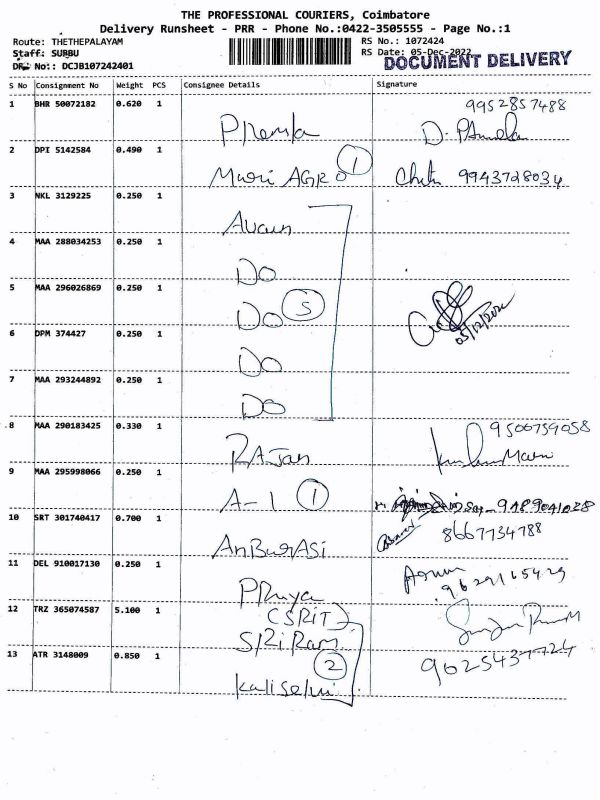 THE PROFESSIONAL COURIERS, Coimbatore
Delivery Runsheet - PRR - Phone No.:0422-3505555 - Page No.:1
Route: THETHEPALAYAM RS No.: 1072424
Staff: SUBBU RS Date: 05-Dec-2022
DRS No:: DCJB107242401 DOCUMENT DELIVERY
S No Consignment No Weight PCS Consignee Details Signature
1 BHR 50072182 0.620 1 Premla 9952857488
2 DPI 5142584 0.490 1 Muari AGRO 1 9943728034
3 NKL 3129225 0.250 1
4 MAA 288034253 0.250 1 DO
5 MAA 296026869 0.250 1 DO 5 05/12/2022
6 DPM 374427 0.250 1 DO
7 MAA 293244892 0.250 1 DO
8 MAA 290183425 0.330 1 RAJan 9500759058
9 MAA 295998066 0.250 1 A-1 1 9489041028
10 SRT 301740417 0.700 1 AnBurASi 8667734788
11 DEL 910017130 0.250 1 PRiya
12 TRZ 365074587 5.100 1 (SRIT)
SRi Ram
13 ATR 3148009 0.850 1 2 9625437724
kaliSelvi